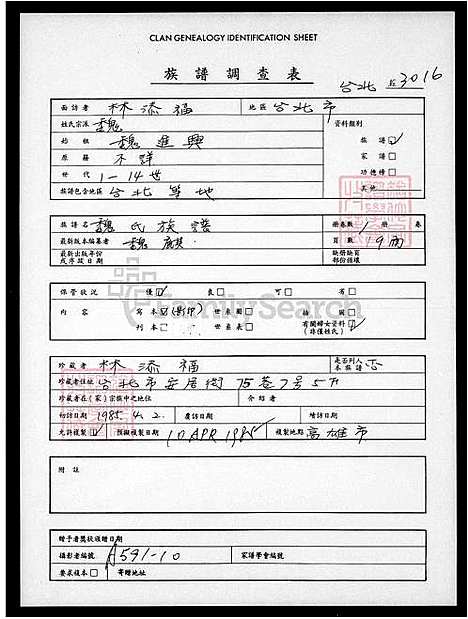 CLAN GENEALOGY IDENTIFICATION SHEET
族譜調查表
台北 3016
面訪者 林添福 地區 台北市
姓氏宗派 魏 資料類別
始祖 魏進興 族譜 ☑
原籍 不詳 家譜 □
世代 1-14世 功德榜 □
族譜包含地區 台北等地 其他
族譜名 魏氏族譜 册卷數 1 册 卷
最新版本編纂者 魏麒 頁數 19面
最新出版年份 缺條缺頁
或序跋日期 部份條樣
保管狀況 優 ☑ 良 □ 可 □ 劣 □
內容 寫本 ☑ (影印) 世系圖 □ 插圖 □
刊本 □ 世系表 □ 有關婦女資料 ☑
(非僅姓氏)
FamilySearch
珍藏者 林添福 是否列入 否
本族譜
珍藏者住址 台北市安居街75巷7号5F
珍藏者在(家)宗族中之地位 介紹者
初訪日期 1985. 4. 2. 複訪日期 續訪日期
允許複製 ☑ 預擬複製日期 10 APR 1985 複製地點 高雄市
附註
贈予者獎狀頒贈日期
攝影者編號 A591-10 家譜學會編號
要求複本 □ 寄贈地址